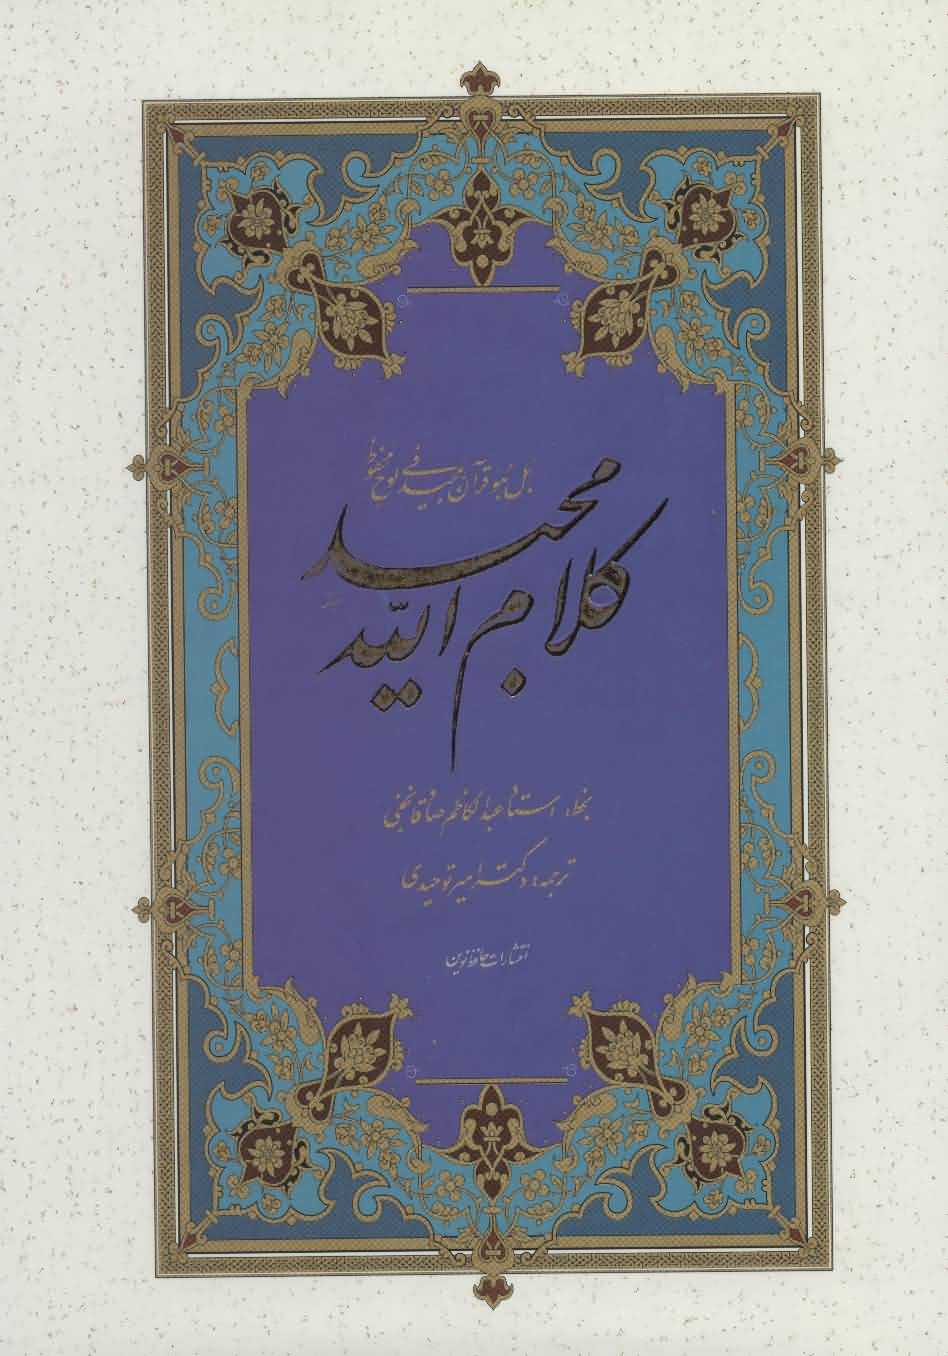 بل هو قرآن مجید فی لوح محفوظ
کلام الله مجید
بخط: استاد عبدالکاظم
ترجمه: دکتر امیر توحیدی
انتشارات حافظ نوین